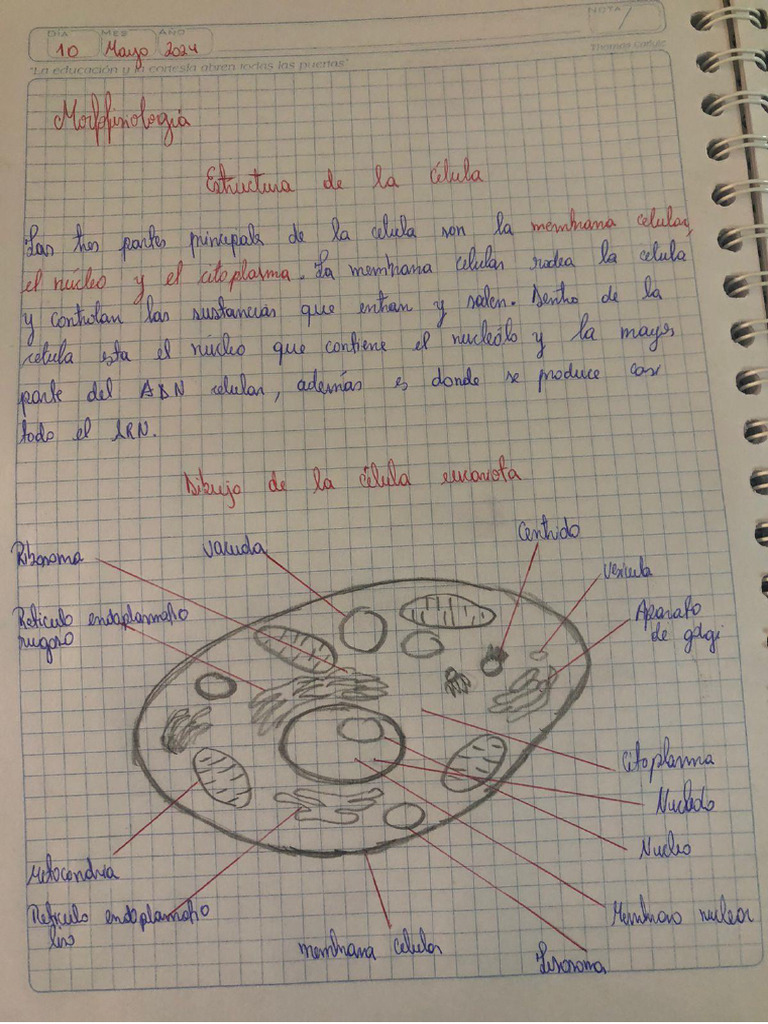 DÍA MES AÑO NOTA
10 Mayo 2024
"La educación y la cortesía abren todas las puertas" Thomas Carlyle
Morffisiologia
Estructura de la Célula
Las tres partes principals de la celula son la membrana celular,
el núcleo y el citoplasma. La membrana celular rodea la celula
y controlan las sustancias que entran y salen. Dentro de la
celula esta el núcleo que contiene el nucleólo y la mayor
parte del ADN celular, además es donde se produce casi
todo el ARN.
Dibujo de la célula eucariota
Centriolo
Ribosoma vacuola
vesicula
Reticulo endoplasmatico
rugoso
Aparato
de golgi
citoplasma
Nucleolo
Nucleo
Mitocondria
Reticulo endoplasmatico
liso
Membrana nuclear
membrana celular
Lisosoma